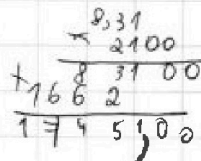 8,31
× 2100
8 31 00
+ 16 6 2
1 7 4 5 1,0 0